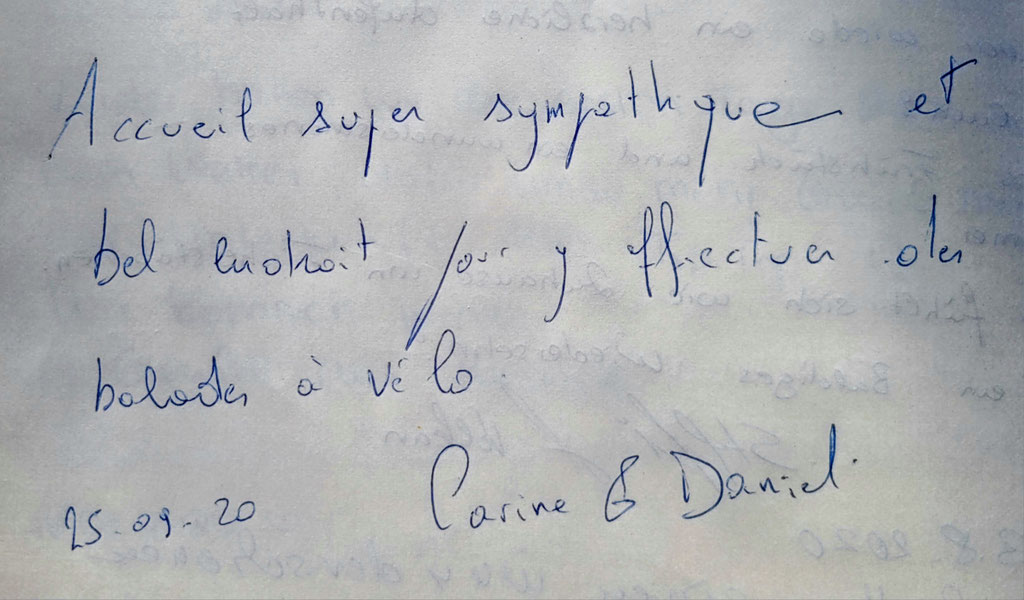 Accueil super sympathique et
bel endroit pour y effectuer des
balades à vélo.
Carine & Daniel
25-09-20